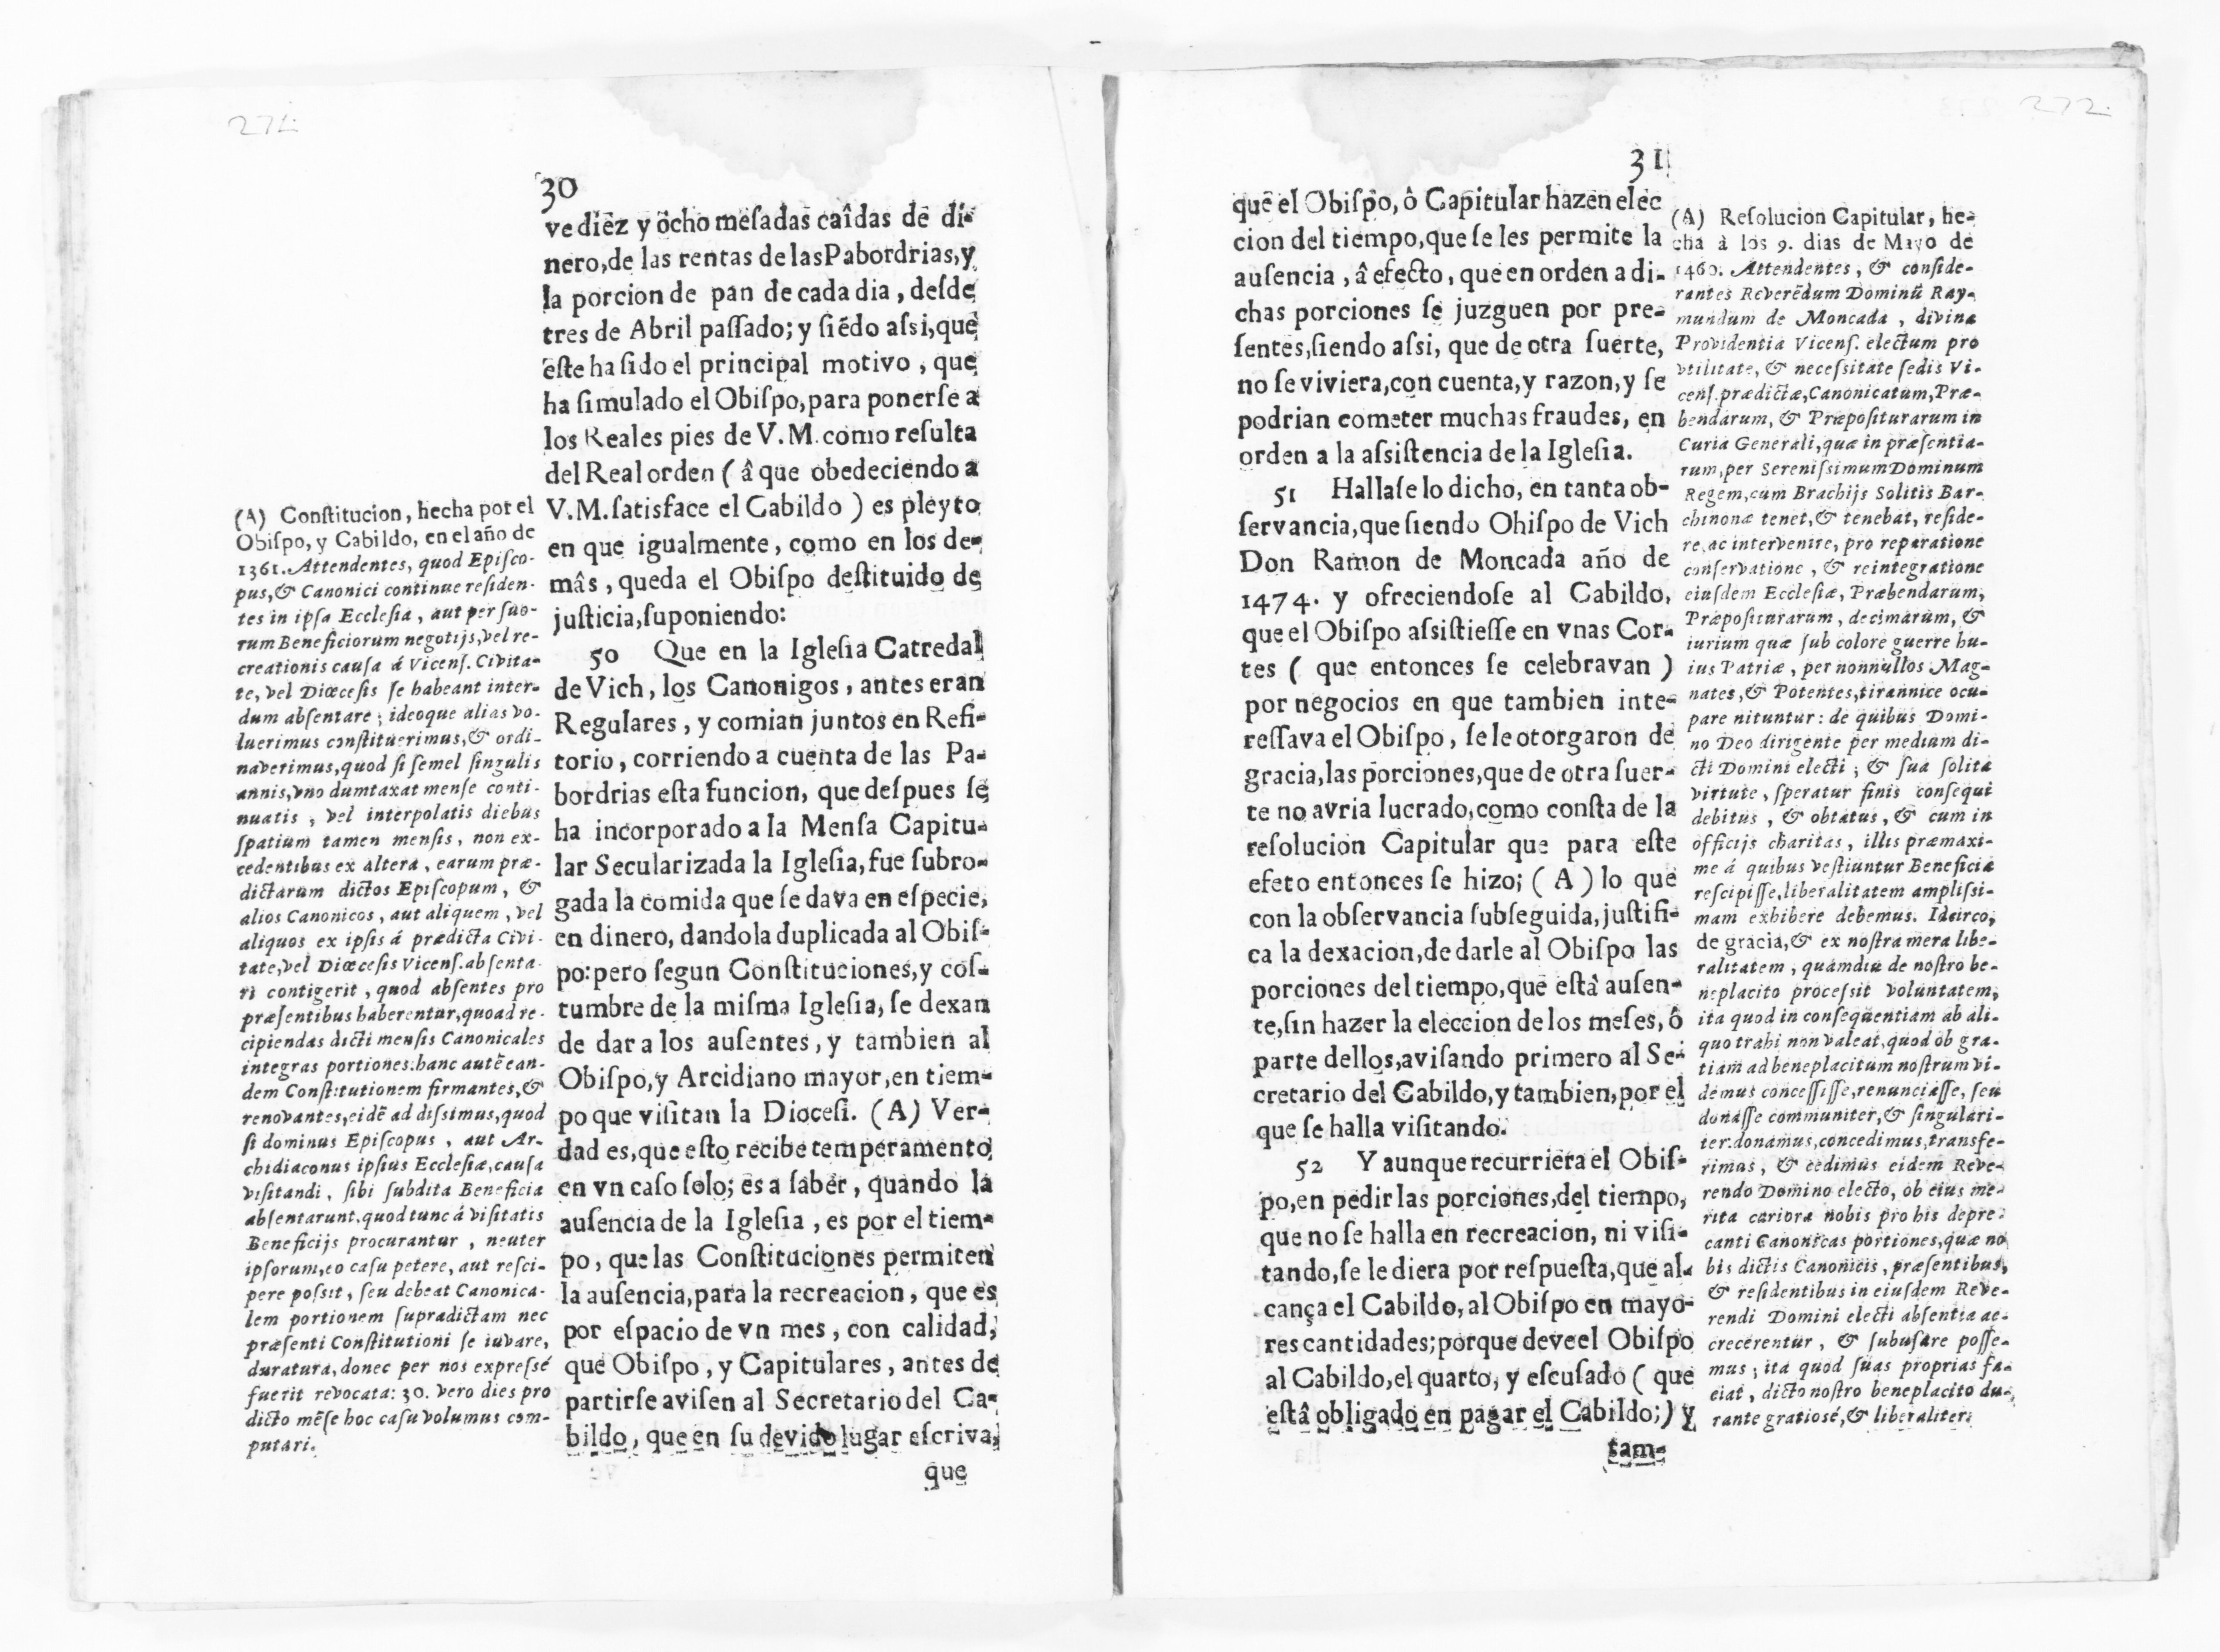 271.
30
ve diêz y ôcho meſadas caîdas de di-
nero,de las rentas de las Pabordrias,y
la porcion de pan de cada dia , deſde
tres de Abril paſſado; y ſiẽdo aſsi,què
èſte ha ſido el principal motivo , que
ha ſimulado el Obiſpo,para ponerſe a
los Reales pies de V.M.como reſulta
del Real orden ( â que obedeciendo a
V.M.ſatisface el Cabildo ) es pleyto
en que igualmente, como en los de-
mâs , queda el Obiſpo deſtituido de
juſticia,ſuponiendo:
50 Que en la Igleſia Catredal
de Vich, los Canonigos , antes eran
Regulares , y comian juntos en Refi-
torio, corriendo a cuenta de las Pa-
bordrias eſta funcion, que deſpues ſe
ha incorporado a la Menſa Capitu-
lar Secularizada la Igleſia,fue ſubro-
gada la comida que ſe dava en eſpecie,
en dinero, dandola duplicada al Obiſ-
po:pero ſegun Conſtituciones,y coſ-
tumbre de la miſma Igleſia, ſe dexan
de dar a los auſentes, y tambien al
Obiſpo,y Arcidiano mayor,en tiem-
po que viſitan la Dioceſi. (A) Ver-
dad es,que eſto recibe temperamento
en vn caſo ſolo; es a ſaber, quando la
auſencia de la Igleſia , es por el tiem-
po, que las Conſtituciones permiten
la auſencia,para la recreacion, que es
por eſpacio de vn mes , con calidad,
que Obiſpo, y Capitulares , antes de
partirſe aviſen al Secretario del Ca-
bildo, que en ſu devido lugar eſcriva,
que
(A) Conſtitucion, hecha por el
Obiſpo, y Cabildo, en el año de
1361. Attendentes, quod Epiſco-
pus,& Canonici continue reſiden-
tes in ipſa Eccleſia , aut per ſuo-
rum Beneficiorum negotijs,vel re-
creationis cauſa á Vicenſ. Civita-
te, vel Diœceſis ſe habeant inter-
dum abſentare ; ideoque alias vo-
luerimus conſtituerimus,& ordi-
naverimus,quod ſi ſemel ſingulis
annis,vno dumtaxat menſe conti-
nuatis , vel interpolatis diebus
ſpatium tamen menſis , non ex-
cedentibus ex altera , earum præ-
dictarum dictos Epiſcopum , &
alios Canonicos , aut aliquem , vel
aliquos ex ipſis á prædicta Civi-
tate,vel Diœceſis Vicenſ.abſenta-
ri contigerit , quod abſentes pro
præſentibus haberentur,quoad re-
cipiendas dicti menſis Canonicales
integras portiones:hanc autẽ ean-
dem Conſtitutionem firmantes,&
renovantes,eidẽ ad diſsimus,quod
ſi dominus Epiſcopus , aut Ar-
chidiaconus ipſius Eccleſiæ,cauſa
viſitandi , ſibi ſubdita Beneficia
abſentarunt,quod tunc á viſitatis
Beneficijs procurantur , neuter
ipſorum,eo caſu petere, aut reſci-
pere poſsit , ſeu debeat Canonica-
lem portionem ſupradictam nec
præſenti Conſtitutioni ſe iuvare,
duratura,donec per nos expreſsé
fuerit revocata: 30. vero dies pro
dicto mẽſe hoc caſu volumus com-
putari.
272.
31
què el Obiſpo, ô Capitular hazen elec
cion del tiempo,que ſe les permite la
auſencia , â efecto , que en orden a di-
chas porciones ſe juzguen por pre-
ſentes,ſiendo aſsi, que de otra ſuerte,
no ſe viviera,con cuenta,y razon,y ſe
podrian cometer muchas fraudes, en
orden a la aſsiſtencia de la Igleſia.
51 Hallaſe lo dicho, en tanta ob-
ſervancia,que ſiendo Ohiſpo de Vich
Don Ramon de Moncada año de
1474. y ofreciendoſe al Cabildo,
que el Obiſpo aſsiſtieſſe en vnas Cor-
tes ( que entonces ſe celebravan )
por negocios en que tambien inte-
reſſava el Obiſpo, ſe le otorgaron de
gracia,las porciones,que de otra ſuer-
te no avria lucrado,como conſta de la
reſolucion Capitular que para eſte
efeto entonces ſe hizo; ( A ) lo que
con la obſervancia ſubſeguida,juſtifi-
ca la dexacion,de darle al Obiſpo las
porciones del tiempo,que eſtà auſen-
te,ſin hazer la eleccion de los meſes, ô
parte dellos,aviſando primero al Se-
cretario del Cabildo,y tambien,por el
que ſe halla viſitando.
52 Y aunque recurriera el Obiſ-
po,en pedir las porciones,del tiempo,
que no ſe halla en recreacion, ni viſi-
tando,ſe le diera por reſpueſta,que al-
cança el Cabildo, al Obiſpo en mayo-
res cantidades;porque deve el Obiſpo
al Cabildo,el quarto, y eſcuſado ( que
eſtâ obligado en pagar el Cabildo;) y
tam-
(A) Reſolucion Capitular, he-
cha à los 9. dias de Mayo de
1460. Attendentes , & conſide-
rantes Reverẽdum Dominũ Ray-
mundum de Moncada , divina
Providentia Vicenſ. electum pro
vtilitate, & neceſsitate ſedis Vi-
cenſ.prædictæ,Canonicatum,Præ-
bendarum, & Præpoſiturarum in
Curia Generali,quæ in præſentia-
rum,per Sereniſsimum Dominum
Regem,cum Brachijs Solitis Bar-
chinonæ tenet,& tenebat, reſide-
re,ac intervenire, pro reparatione
conſervatione , & reintegratione
eiuſdem Eccleſiæ, Præbendarum,
Præpoſiturarum , decimarum, &
iurium quæ ſub colore guerre hu-
ius Patriæ , per nonnullos Mag-
nates,& Potentes,tirannice ocu-
pare nituntur : de quibus Domi-
no Deo dirigente per medium di-
cti Domini electi ; & ſua ſolita
virtute , ſperatur finis conſequi
debitus , & obtatus , & cum in
officijs charitas , illis præmaxi-
me á quibus veſtiuntur Beneficia
reſcipiſſe,liberalitatem ampliſsi-
mam exhibere debemus. Idcirco,
de gracia,& ex noſtra mera libe-
ralitatem , quamdiu de noſtro be-
neplacito proceſsit voluntatem,
ita quod in conſequentiam ab ali-
quo trahi non valeat,quod ob gra-
tiam ad beneplacitum noſtrum vi-
demus conceſſiſſe,renunciaſſe, ſeu
donaſſe communiter,& ſingulari-
ter:donamus,concedimus,transfe-
rimus , & cedimus eidem Reve-
rendo Domino electo, ob eius me-
rita cariora nobis pro his depre-
canti Canonicas portiones,quæ no
bis dictis Canonicis , præſentibus,
& reſidentibus in eiuſdem Reve-
rendi Domini electi abſentia ac-
crecerentur , & ſubuſare poſſe-
mus ; ita quod ſuas proprias fa-
ciat , dicto noſtro beneplacito du-
rante gratioſé,& liberaliter.